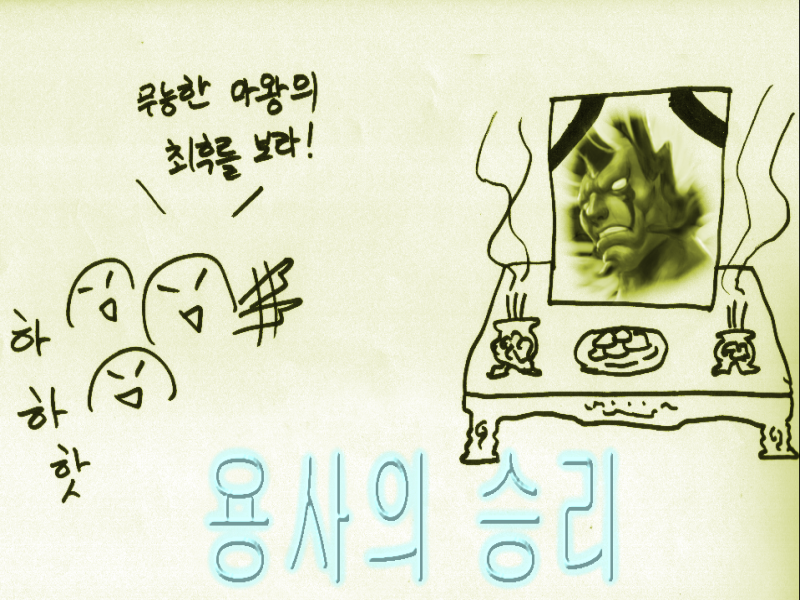 무능한 마왕의
최후를 보라!
하
하
핫
용사의 승리